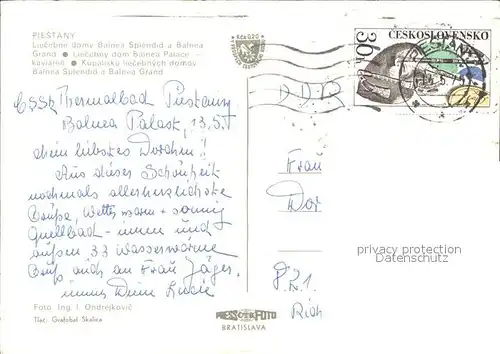 PIEŠŤANY
Liečebné domy Balnea Splendid a Balnea
Grand ● Liečebný dom Balnea Palace -
kaviareň ● Kúpalisko liečebných domov
Balnea Splendid a Balnea Grand
ČSSR Thermalbad Piestany
Balnea Palast, 13.5.
Mein liebstes Dorchen!
Aus dieser Schönheit
nochmals allerherzlichste
Grüße, Wetter warm + sonnig
Quellbad - innen und
außen 33 Wasserwärme
Grüß auch an Frau Jäger.
immer Deine Lucie
Foto: Ing. I. Ondrejkovič
Tlač: Grafobal Skalica
ČESKOSLOVENSKO
36
PIEŠŤANY
D D R
Frau
Dor
privacy protection
watermark
Rich
PRESSFOTO
BRATISLAVA